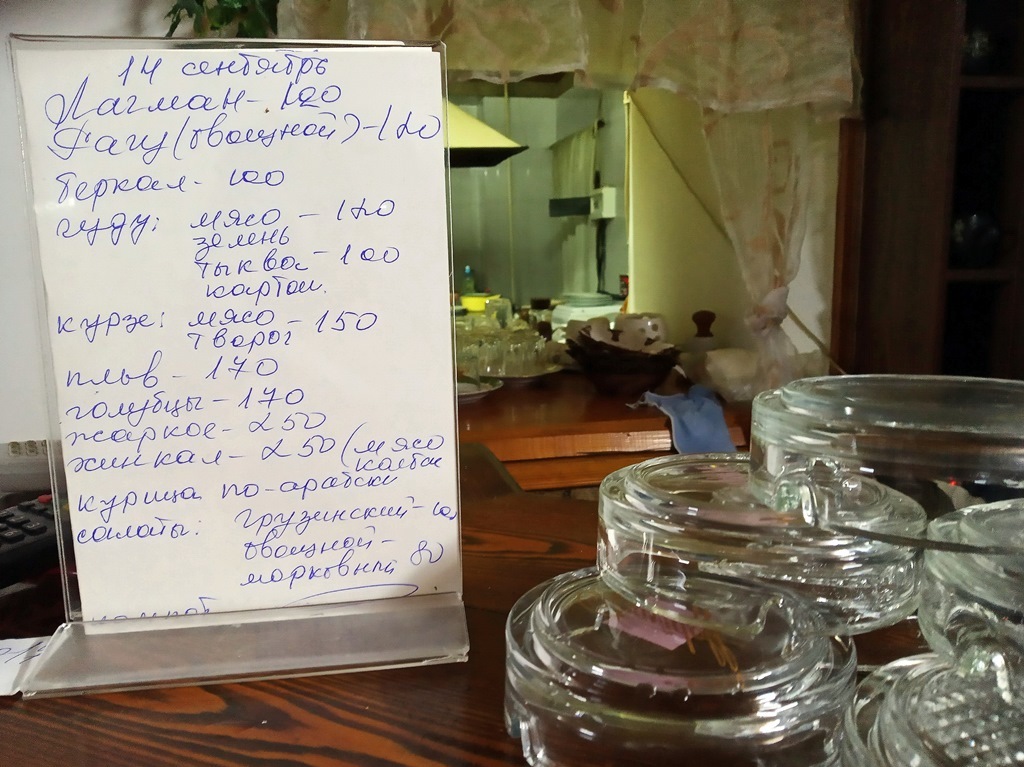 14 сентябрь
Лагман - 120
Рагу (овощной) - 120
беркал - 100
чуду: мясо - 120
зелень
тыква - 100
картош.
курзе: мясо - 150
творог
плов - 170
голубцы - 170
жаркое - 250
жинкал - 250 (мясо
колбас
курица по-арабски
салаты: грузинский - 100
овощной -
морковный 80